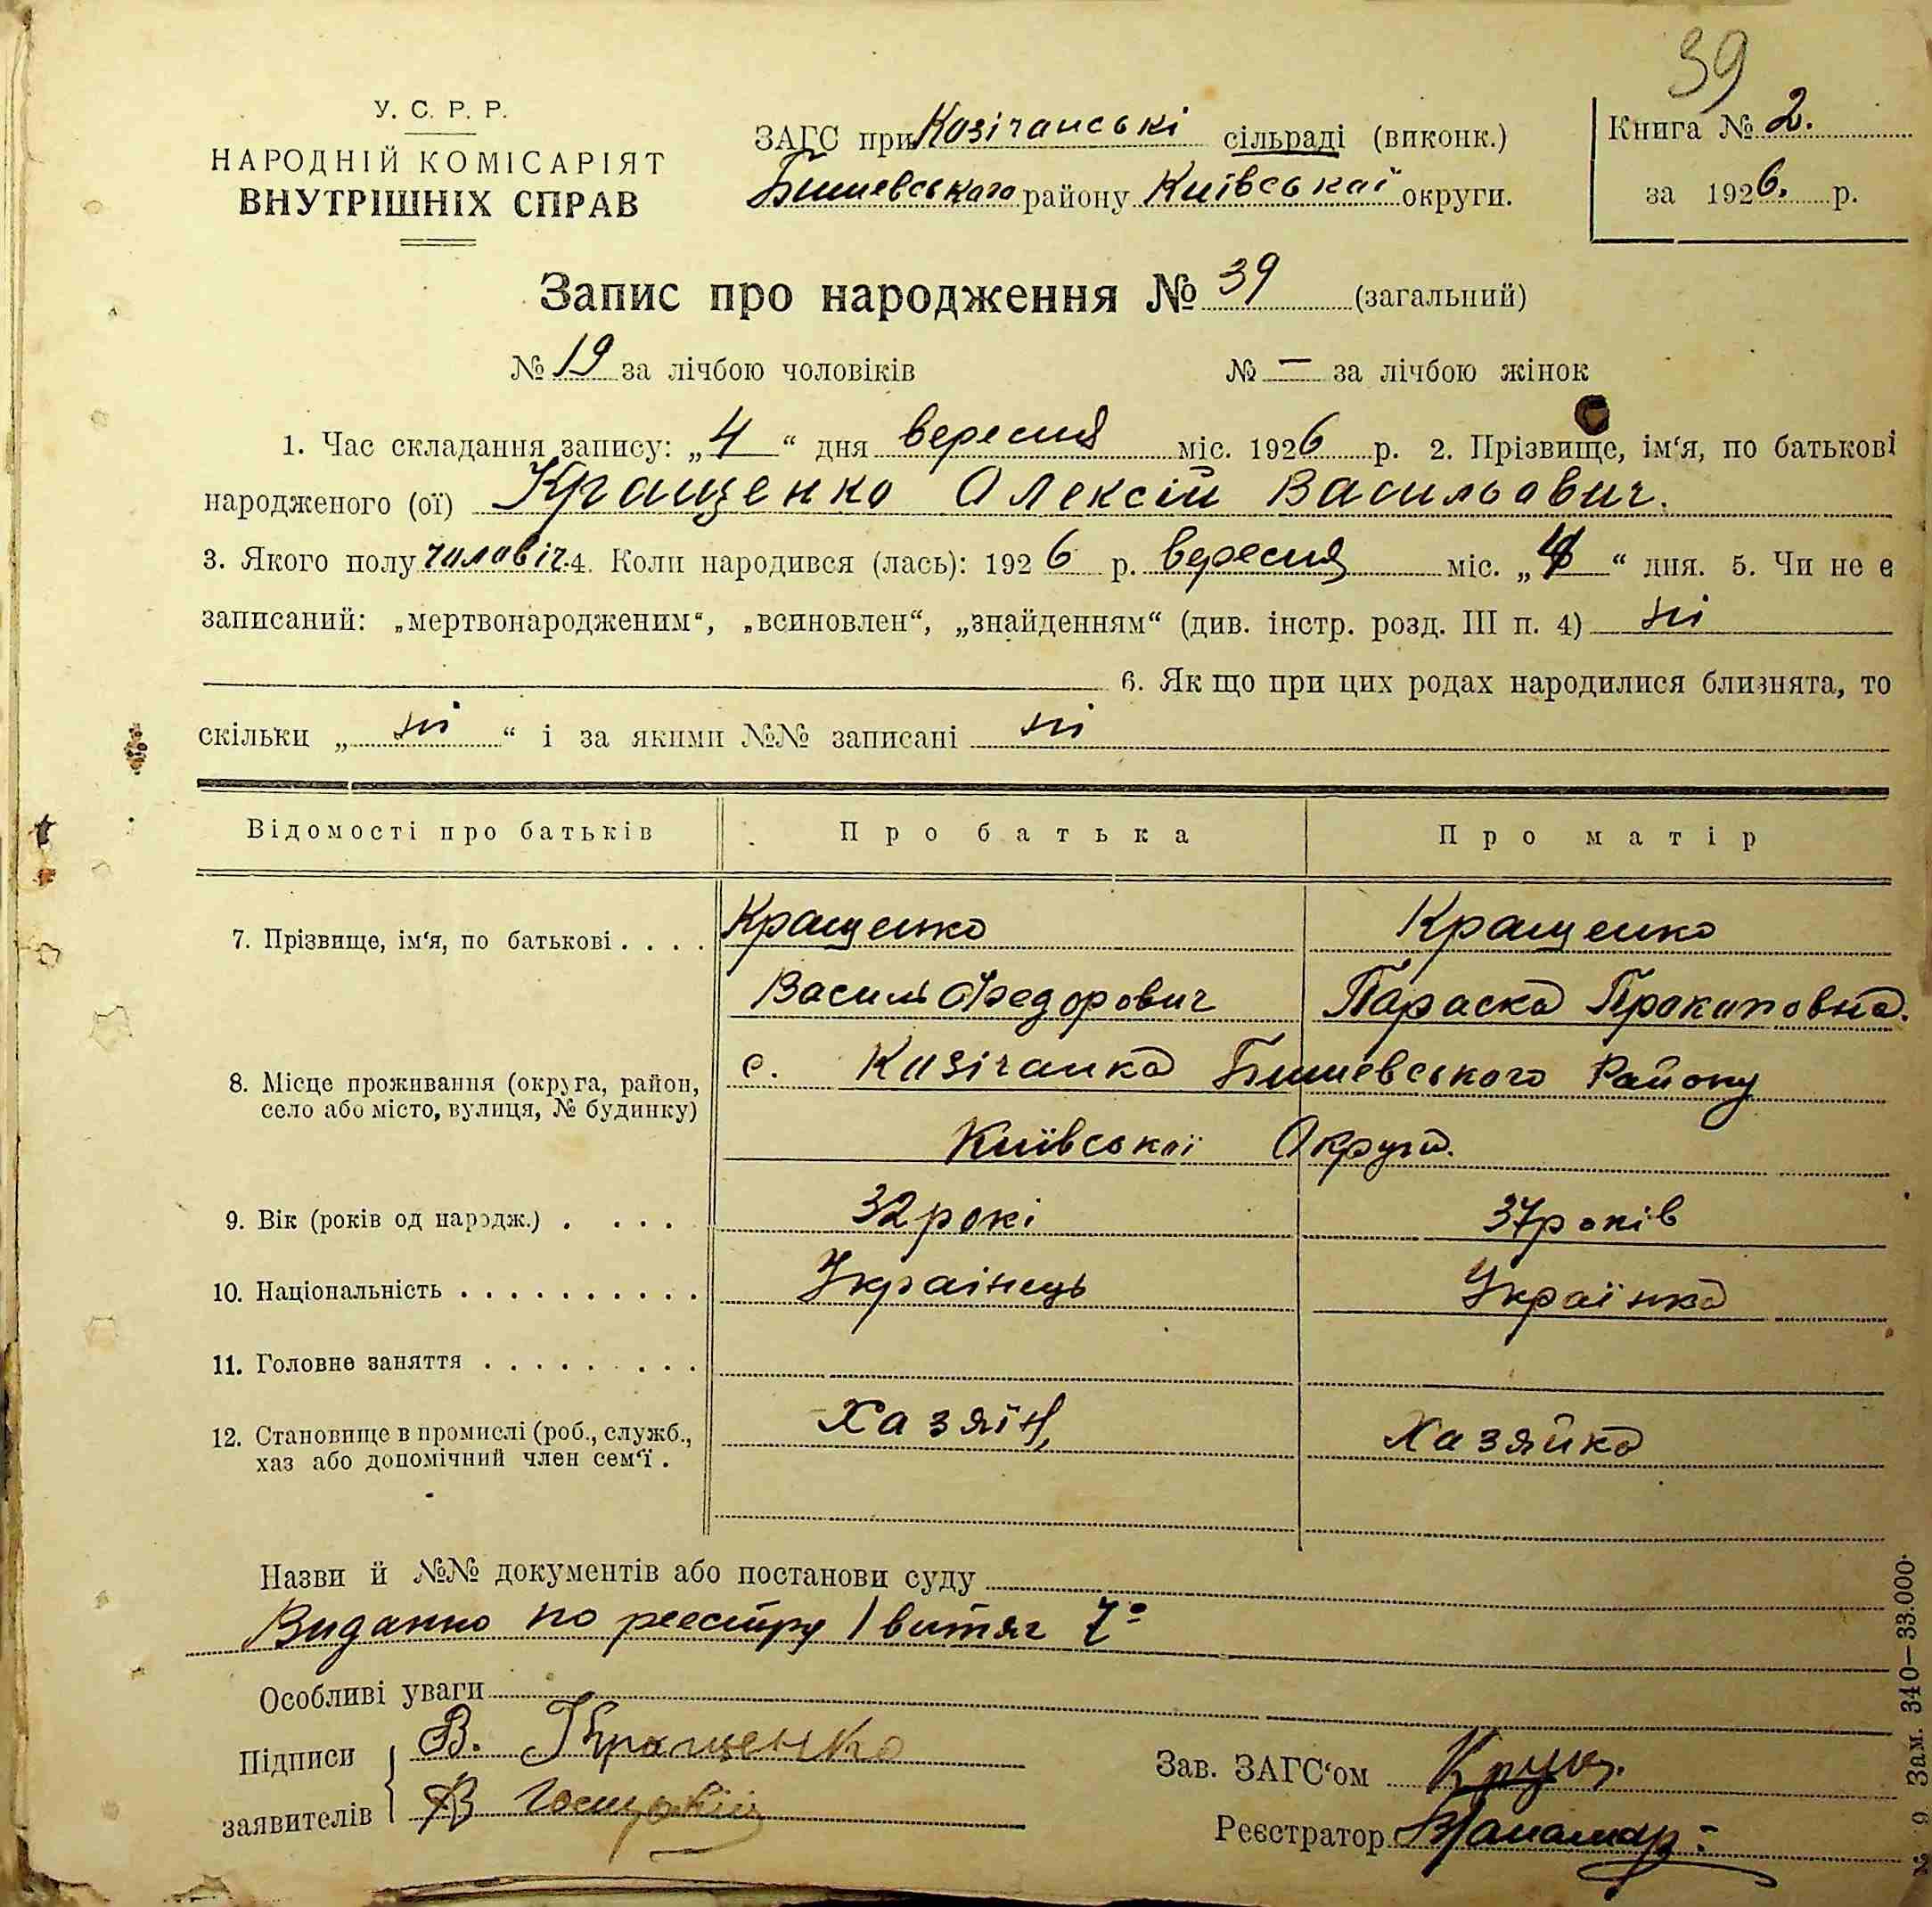 39
У. С. Р. Р.
НАРОДНІЙ КОМІСАРІЯТ
ВНУТРІШНІХ СПРАВ
ЗАГС при Козічанські сільраді (виконк.)
Бишевського району Київської округи.
Книга № 2.
за 1926. р.
Запис про народження № 39 (загальний)
№ 19 за лічбою чоловіків № — за лічбою жінок
1. Час складання запису: „4“ дня вересня міс. 1926 р. 2. Прізвище, ім‘я, по батькові
народженого (ої) Кращенко Олексій Васильович.
3. Якого полу чоловіч. 4. Коли народився (лась): 1926 р. вересня міс. „4“ дня. 5. Чи не є
записаний: „мертвонародженим“, „всиновлен“, „знайденням“ (див. інстр. розд. III п. 4) ні
6. Як що при цих родах народилися близнята, то
скільки „ ні “ і за якими №№ записані ні
Відомості про батьків Про батька Про матір
7. Прізвище, ім‘я, по батькові . . . . Кращенко Кращенко
Василь Федорович Параска Прокоповна.
8. Місце проживання (округа, район, село або місто, вулиця, № будинку) с. Козічанка Бишевського Району
Київської Округи.
9. Вік (років од народж.) . . . . 32 рокі 37 років
10. Національність . . . . . . . . . . Українець Українка
11. Головне заняття . . . . . . . . .
12. Становище в промислі (роб., служб., Хазяїн, Хазяйка
хаз або допомічний член сем‘ї .
Назви й №№ документів або постанови суду
Виданно по реестру 1 витяг
Особливі уваги
Підписи В. Кращенко
заявителів
Зав. ЗАГС‘ом
Реєстратор Паламар
Зам. 340—33.000.